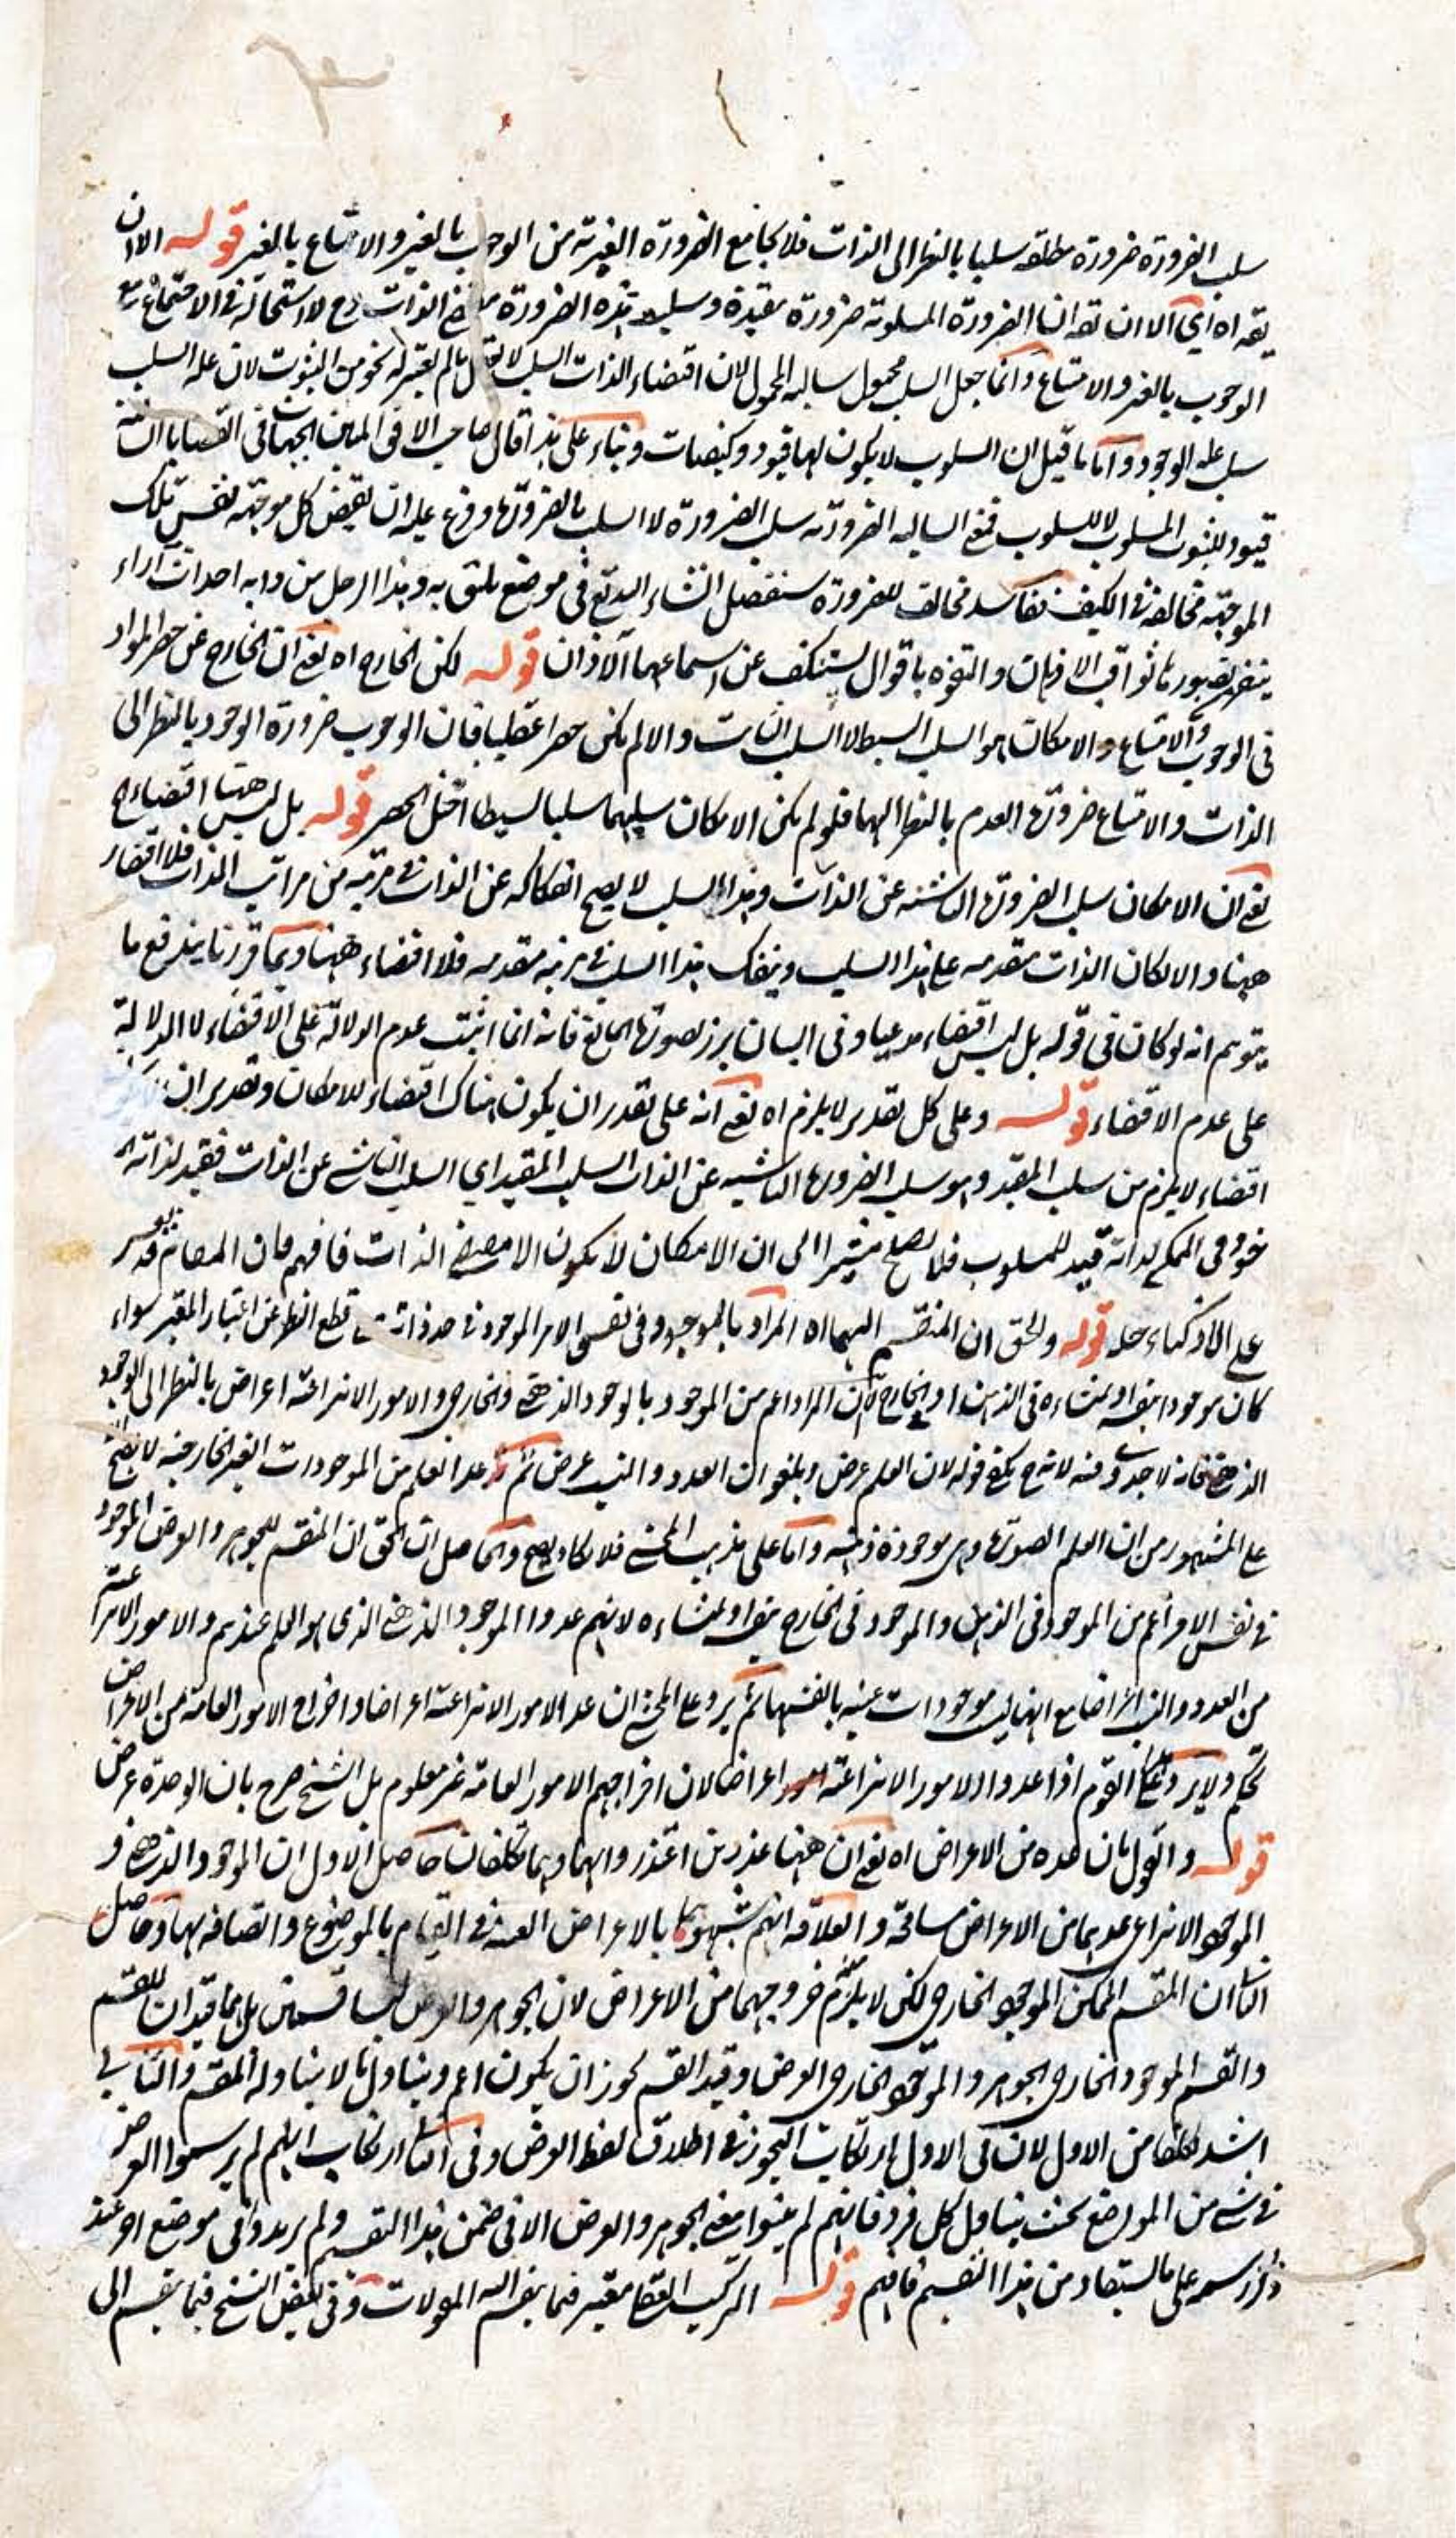 سلب الضرورة ضرورة مطلقة سلبيا بالنظر الى الذات فلا يجامع الضرورة الغيرية من الوجوب بالغير والامتناع بالغير قوله الا ان
يقه اه اي الا ان تقه ان الضرورة المسلوبة ضرورة مقيدة وسلب هذه الضرورة الذات لا استحالة في الاجتماع مع
الوجوب بالغير والامتناع وانما جعل السلب محمول سالبة المحمول لان اقتضاء الذات السلب لا يعقل ما لم يعتبر له نحو من الثبوت لان علة السلب
سلب علة الوجود واما ما قيل ان السلوب لا يكون لها قيود وكيفيات وبناء على هذا قال صاحب الافق المبين الجهات في القضايا السالبة
قيود للثبوت المسلوب لا للسلوب فمع السالبة الضرورية سلب الضرورة لا السلب بالضرورة وفرع عليه ان نقيض كل موجهة نفس تلك
الموجهة مخالفة في الكيف ففاسد مخالف للضرورة سنفصل انشاء الله تع في موضع يليق به وهذا الرجل من دابه احداث آراء
يتضجر بصبورها ثواقب الاذهان والتفوه باقوال يستنكف عن اسماعها الآذان قوله لكن الخارج اه يعني ان الخارج عن حصر المواد
في الوجوب والامتناع والامكان هو السلب البسيط لا السلب الثابت والا لم يكن حصرا عقليا فان الوجوب ضرورة الوجود بالنظر الى
الذات والامتناع ضرورة العدم بالنظر اليها فلو لم يكن الامكان سلبهما سلبا بسيطا اختل الحصر قوله بل ليس ههنا اقتضاء اه
يعني ان الامكان سلب الضرورة الناشئة عن الذات وهذا السلب لا يصح انفكاكه عن الذات في مرتبة من مراتب الذات فلا اقتضاء
ههنا والا لكان الذات متقدمة على هذا السلب وينفك هذا السلب في مرتبة متقدمة فلا اقتضاء ههنا وبما قررنا يندفع ما
يتوهم انه لو كان في قوله بل ليس اقتضاء مدعيا وفي البيان برز بصورة المانع فانه انما اثبت عدم الدلالة على الاقتضاء لا الدلالة
على عدم الاقتضاء قوله وعلى كل تقدير لا يلزم اه يعني انه على تقدير ان يكون هناك اقتضاء للامكان وتقدير ان
اقتضاء لا يلزم من سلب المقيد وهو سلب الضرورة الناشية عن الذات السلب المقيد اي السلب الناشي عن الذات فقيد لذاته الم
خوذ في الممكن لذاته قيد للمسلوب فلا يصلح مشيرا الى ان الامكان لا يكون الا مقتضى الذات فافهم فان المقام قد يعسر
على الاذكياء حله قوله والحق ان المنقسم اليهما اه المراد بالموجود في نفس الامر الموجود في حد ذاته مع قطع النظر عن اعتبار المعتبر سواء
كان موجودا بنفسه او بمنشاءه في الذهن او الخارج لان المراد اعم من الموجود بالوجود الذهني والخارجي والامور الانتزاعية اعراض بالنظر الى الوجود
الذهني فانه لا جدوى فيه لانه ح يكفي قوله لان العلم عرض ويلغو ان العدد والنسب عرض ثم عد العلم من الموجودات الغير الخارجية لا يصح
على المشهور من ان العلم الصورة وهي موجودة ذهنية واما على مذهب المحشي فلا يكاد يصح والحاصل ان الحق ان المنقسم للجوهر والعرض الموجود
في نفس الامر اعم من الموجود في الذهن والموجود في الخارج بنفسه او بمنشاءه لانهم عدوا الموجود الذهني الذي هو العلم عندهم والامور الانتزاعية
من العدد والنسب اعراضا مع انها ليست موجودات عينية بالفسها ثم يرد على المحشي ان عد الامور الانتزاعية اعراضا واخراج الامور العامة من الاعراض
تحكم ولا يرد على القوم اذا عدوا الامور الانتزاعية اعراضا لان اخراجهم الامور العامة غير معلوم بل الشيخ صرح بان الوحدة عرض
قوله والقول بان عده من الاعراض اه يعني ان ههنا عذرين اعتذروا بهما وهما تكلفان حاصل الاول ان الموجود الذهني و
الموجود الانتزاعي عدهما من الاعراض مسامحة والعلاقة انهم شبهوهما بالاعراض العينية في القيام بالموضوع واتصافه بها وحاصل
الثاني ان المقسم الممكن الموجود الخارجي لكن لا يلزم خروجهما من الاعراض لان الجوهر والعرض ليسا قسمين بل هما قيدان للقسم
والقسم الموجود الخارجي الجوهر والموجود الخارجي العرض وقيد القسم يجوز ان يكون اعم ويتناول ما لا يتناوله المقسم والثاني
اشد تكلفا من الاول لان في الاول ارتكاب التجوز في اطلاق لفظ العرض وفي الثاني ارتكاب انهم لم يرسموا العرض
في شيء من المواضع بحيث يتناول كل فرد فانهم لم يبينوا معنى الجوهر والعرض الا في ضمن هذا التقسيم ولم يريدوا في موضع آخر عند
ذكر رسمه على ما يستفاد من هذا التقسيم فافهم قوله التركيب العقلي معتبر فيما ينقسم اليه المقولات وفي بعض النسخ فيما ينقسم الى